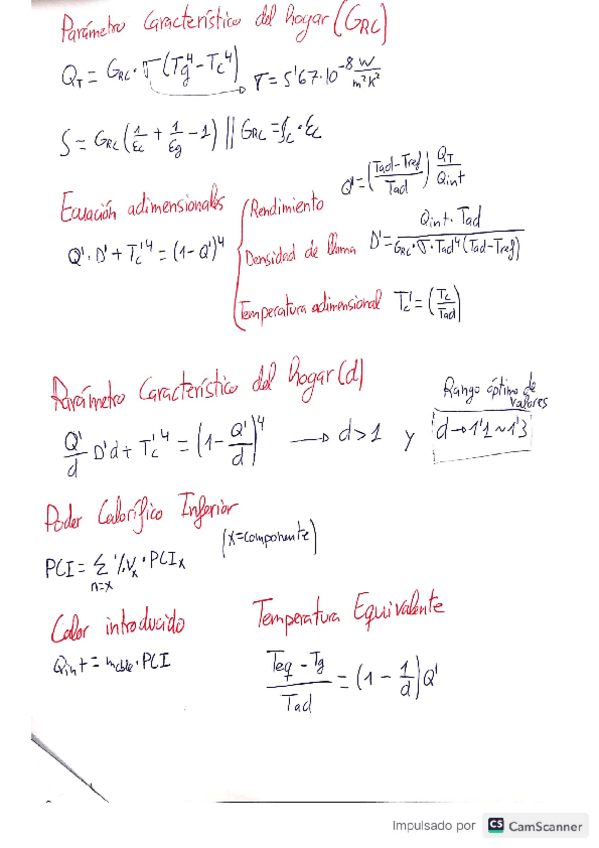 Parámetro Característico del hogar (GRC)
QT = GRC · σ (Tg⁴ - Tc⁴) → σ = 5'67·10⁻⁸ W/m²K²
S = GRC (1/εc + 1/εg - 1) || GRC = ξc · εc
Ecuación adimensionales
Q'·D' + Tc'⁴ = (1-Q')⁴
Rendimiento Q' = (Tad-Tref/Tad) QT/Qint
Densidad de llama D' = Qint·Tad/GRC·σ·Tad⁴(Tad-Tref)
Temperatura adimensional Tc' = (Tc/Tad)
Parámetro Característico del hogar (d)
Q'/d D'd + Tc'⁴ = (1 - Q'/d)⁴ → d>1 y
Rango óptimo de valores
d → 1'1 ~ 1'3
Poder Calorífico Inferior
PCI = Σ n=x %Vx · PCIx
(x=componente)
Calor introducido
Qint = mcble · PCI
Temperatura Equivalente
Teq - Tg/Tad = (1 - 1/d) Q'
Impulsado por CS CamScanner